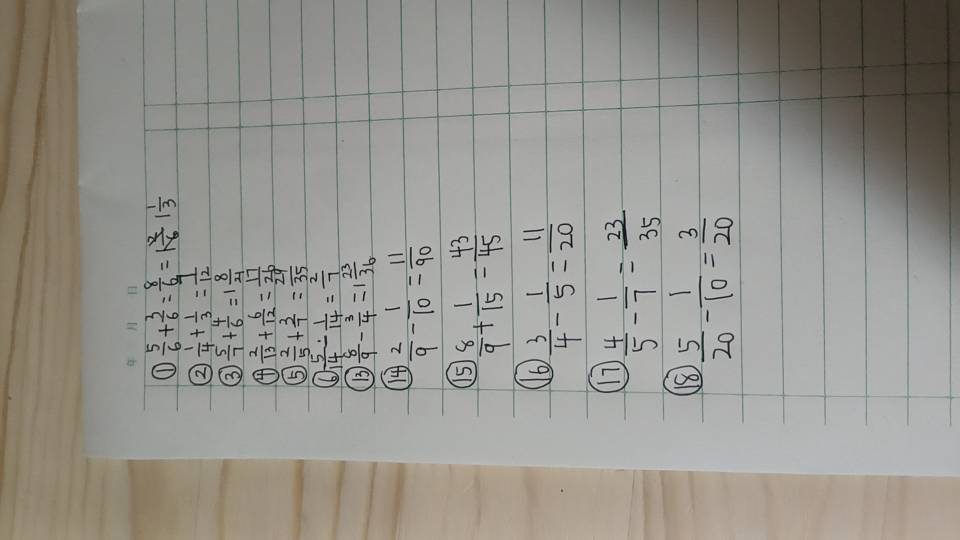 ① 5/6 + 3/6 = 8/6 = 1 2/6 1 1/3
② 1/4 + 1/3 = 7/12
③ 5/7 + 4/6 = 1 8/21
④ 2/13 + 6/12 = 17/26
⑤ 2/5 + 2/7 = 24/35
⑥ 5/14 - 1/14 = 2/7
⑬ 8/9 - 3/4 = 1 23/36
⑭ 2/9 - 1/10 = 11/90
⑮ 8/9 + 1/15 = 43/45
⑯ 3/4 - 1/5 = 11/20
⑰ 4/5 - 1/7 = 23/35
⑱ 5/20 - 1/10 = 3/20